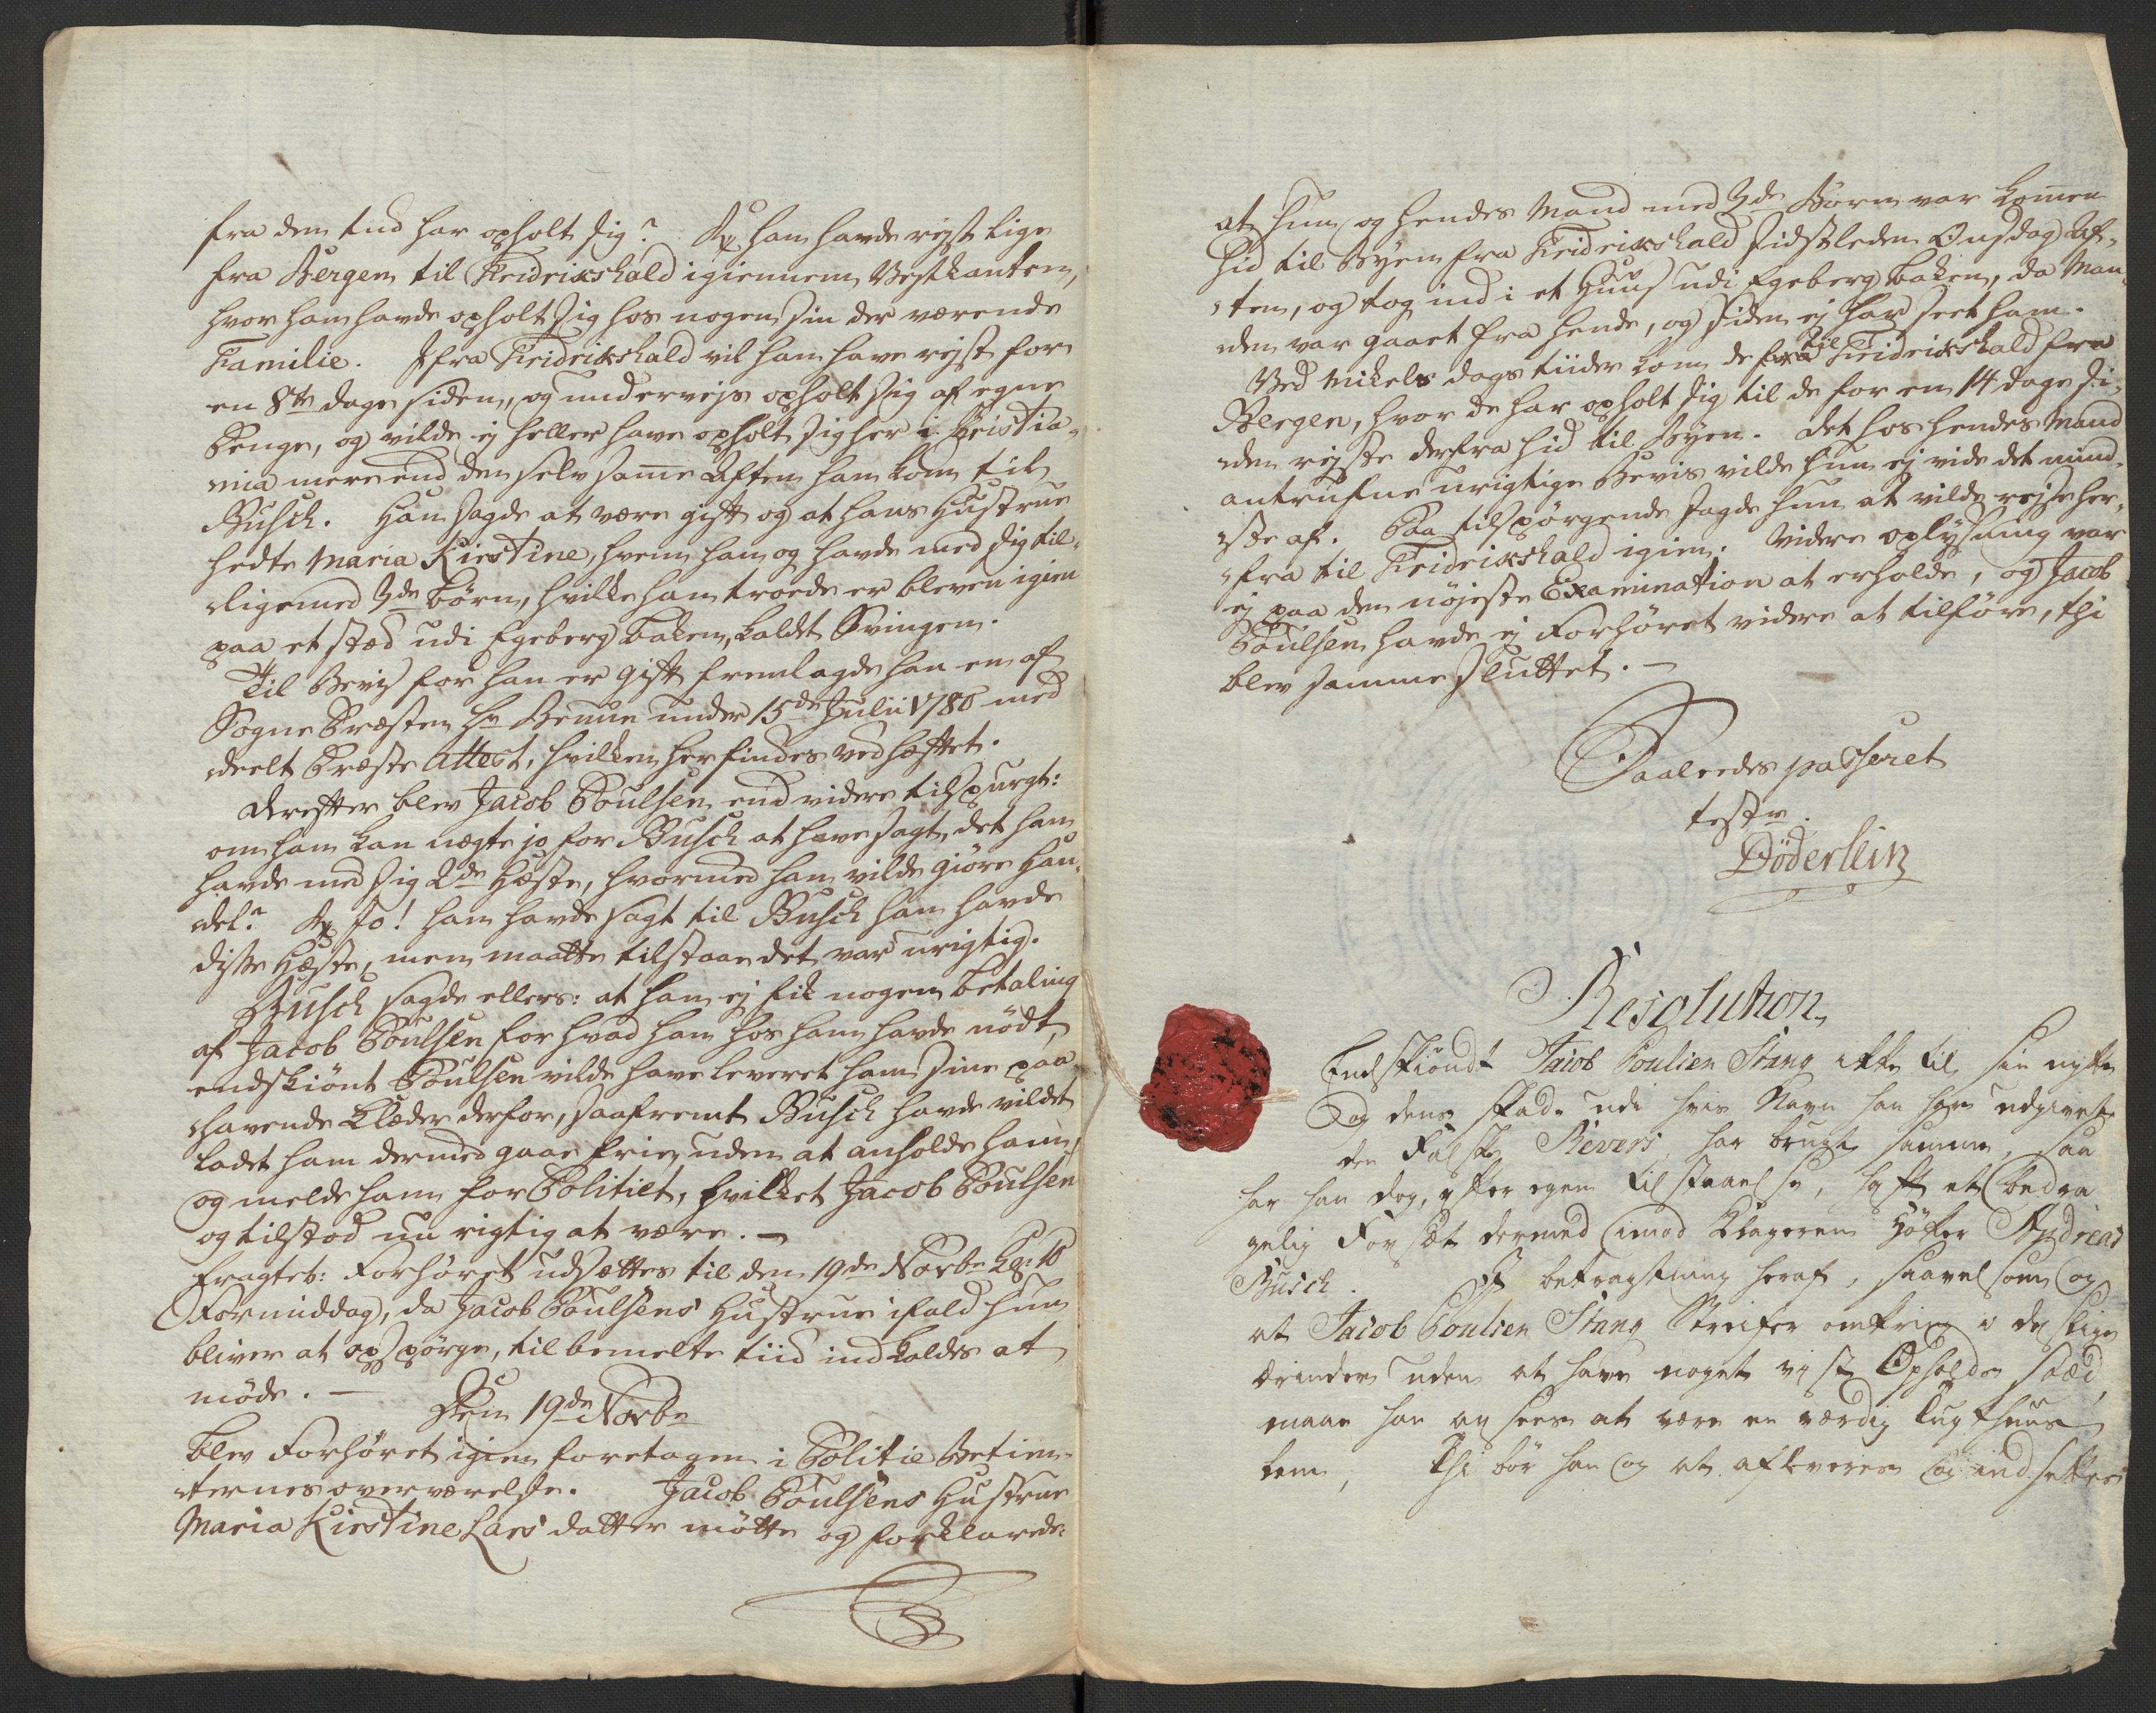 fra den tud har opholt sig? Rx han havde rejst lige
fra Bergen til Fridrixshald igiennem Vestkanten,
hvor han havde opholt sig hos nogen sin der værende
Familie. Ifra Fridrixshald vil han have rejst for
en 8te dage siden, og undervejs opholt sig af egne
Penge, og vilde ej heller have opholt sig her i Kristia-
nia mere end den selv samme Aften han kom til
Busch. Han sagde at være gift og at hans Hustrue
hedte Maria Kirstine, hvem han og havde med sig til-
ligemed 3de Børn, hvilke han troede er bleven igien
paa et stæd udi Egeberg bakken, kaldt Svingen.
Til Bevis for han er gift fremlagde han en af
Sogne Præsten Hr Bruun under 15de Julii 1780 med
deelt Præste Attest, hvilken her findes ved hæftet.
Derefter blev Jacob Poulsen end videre tilspurgt:
om han kan negte jo for Busch at have sagt, det han
havde med sig 2de Heste, hvormed han vilde giöre Han-
del? Rx Jo! han havde sagt til Busch han havde
disse Heste, men maatte tilstaae det var urigtig.
Busch sagde ellers: at han ej fik nogen betaling
af Jacob Poulsen for hvad han hos ham havde nödt,
endskiönt Poulsen vilde have leveret ham sine paa
havende Klæder derfor, saafremt Busch havde vildet
ladet ham dermed gaae frie, uden at anholde ham,
og melde ham for Politiet, hvilket Jacob Poulsen
og tilstod nu rigtig at være. —
fragteb: Forhöret udsættes til den 19de Novbr Kl: 10
Formiddag, da Jacob Poulsens Hustrue ifald hun
bliver at opspörge, til bemelte tiid indkaldes at
møde. —
Den 19de Novbr
blev Forhöret igien foretagen i Politie Betien-
ternes overværelse. Jacob Poulsens Hustrue
Maria Kirstine Lars datter mötte og forklarede:
at hun og hendes Mand med 3de Börn var kommen
hid til Byen fra Fridrixshald sidstleden Onsdag Af-
ten, og tog ind i et Huus udi Egeberg bakken, da Man-
den var gaaet fra hende, og siden ej har seet ham.
Ved Mikels dags tiider kom de til Fridrixshald fra
Bergen, hvor de har opholt sig til de for en 14 dage si-
den rejste derfra hid til Byen. Det hos hendes Mand
antrufne urigtige Bevis vilde hun ej vide det mind-
ste af. Paa tilspörgende sagde hun at vilde rejse her-
fra til Fridrixshald igien. Videre oplysning var
ej paa den nöjeste Examination at erholde, og Jacob
Poulsen havde ej Forhöret videre at tilföre, thi
blev samme sluttet. —
Saaleedes passeret
testr.
Döderlein
Resolution
Endskiöndt Jacob Poulsen Stang ikke til sin nytte
og dens skade udi hvis Navn han har udgivet
den falske Revers, har brugt samme, saa
har han dog, efter egen tilstaaelse, haft et bedra
gelig Forsæt dermed imod Klageren Höker Andreas
Busch. I betragtning heraf, saavelsom og
at Jacob Poulsen Stang Streifer omkring i
ærinder uden at have noget vist Opholds stæd,
maae han ansees at være en værdig Tugthuus
lem, Thi bör han og at afleveres og indsettes